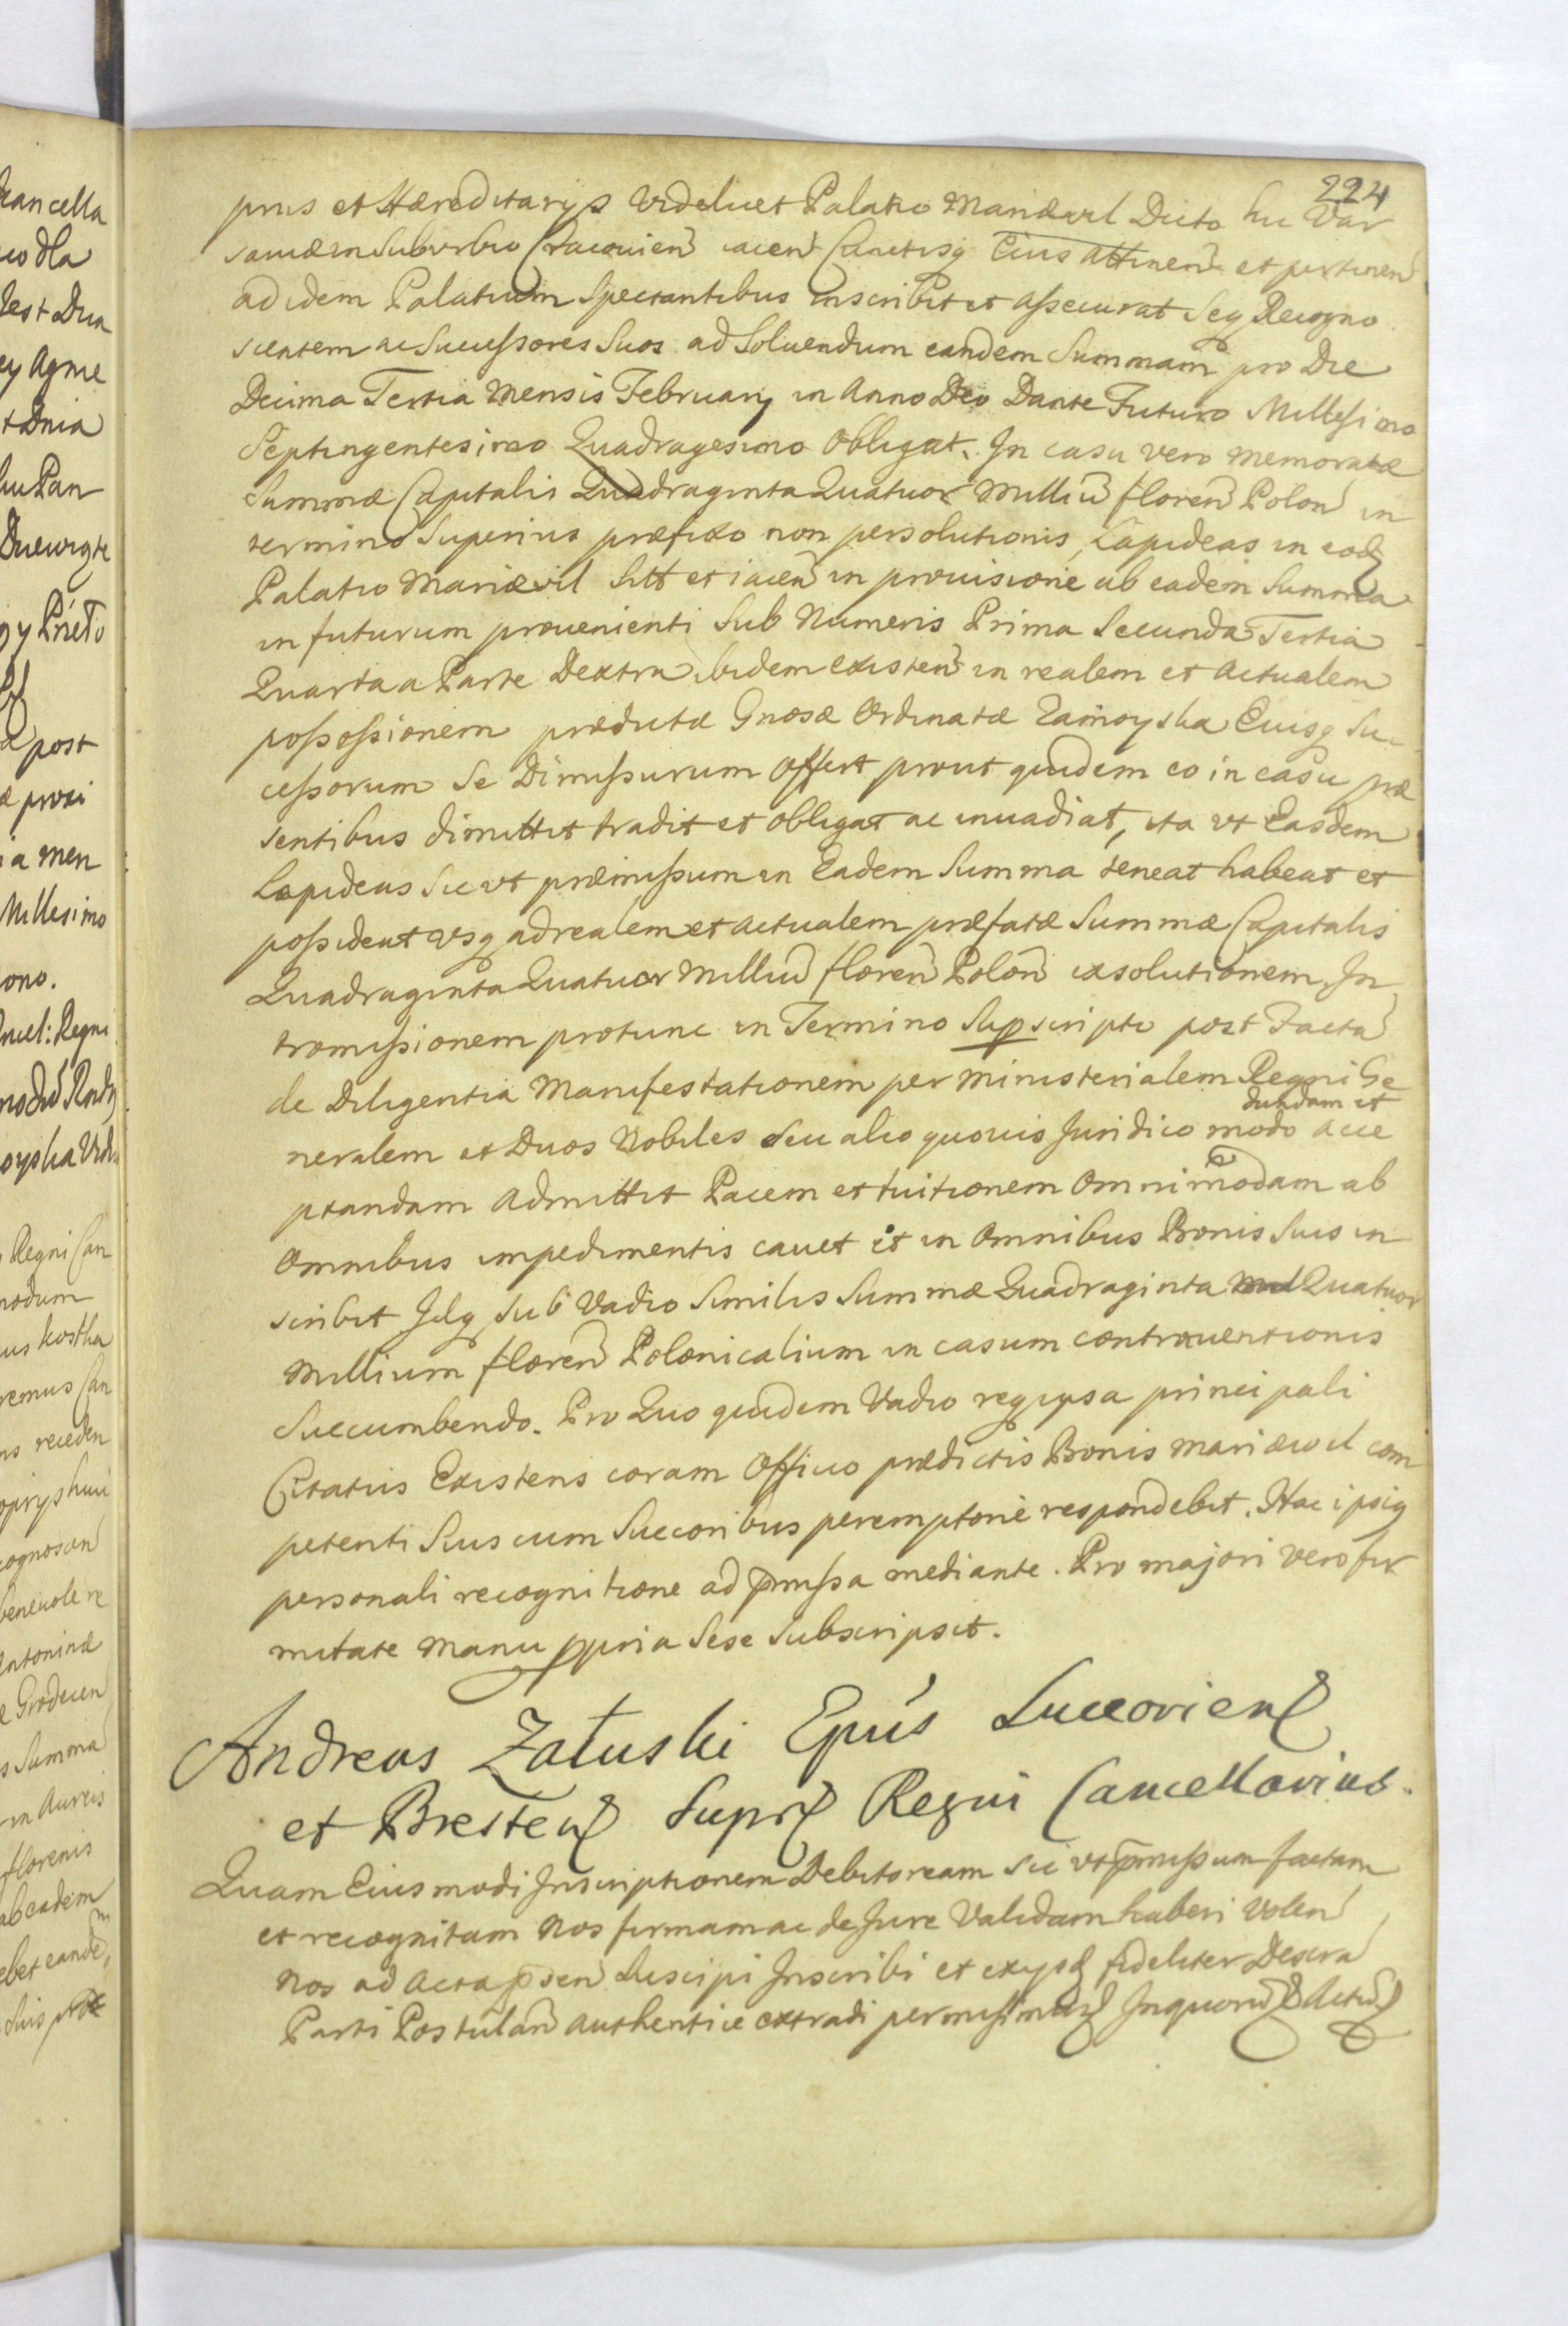 224
prijs et Hæreditarijs videlicet Palatio Mariævil Dicto hic Var
saviæ in Suburbio Cracovien̄ iacen̄ Cunctisq Eius attinen̄ et pertinen̄
ad idem Palatium Spectantibus inscribit et assecurat Seq Recogno
scentem ac Sucessores Suos ad Soluendum eandem Summam pro Die
Decima Tertia Mensis Februarij in Anno Deo Dante Futuro Millesimo
Septingentesimo Quadragesimo obligat. In casu vero memoratæ
Summæ Capitalis Quadraginta Quatuor Milliū floren̄ Polon̄ in
termino Superius præfixo non persolutionis, Lapideas in eod
Palatio Mariævil Sitt et iacen̄ in prouisione ab eadem Summa
in futurum prouenienti Sub Numeris Prima Secunda Tertia
Quarta a Parte Dextra ibidem existen̄ in realem et actualem
possessionem prædictæ Gnosæ Ordinatæ Zamoyska Eiusq Suc
cessorum Se Dimissurum offert prout quidem eo in casu præ
sentibus dimittit tradit et obligat ac inuadiat, ita vt Easdem
Lapideas Sic vt præmissum in Eadem Summa teneat habeat et
possideat vsq ad realem et actualem præfatæ Summæ Capitalis
Quadraginta Quatuor Milliū floren̄ Polon̄ exsolutionem, In
tromissionem protunc in Termino Supscripto post Factā
de Diligentia Manifestationem per Ministerialem Regni Ge
dundam et
neralem et Duos Nobiles Seu alio quovis Juridico modo acce
ptandam admittit Pacem et tuitionem omnimodam ab
omnibus impedimentis cauet et in omnibus Bonis Suis in
scribit Idq Sub Vadio Similis Summæ Quadraginta Quatuor
Millium floren̄ Polonicalium in casum contrauentionis
Succumbendo. Pro Quo quidem Vadio reqipsa principali
Citatus Existens coram officio prædictis Bonis Mariævil com
petenti Suis cum Succoribus peremptorie respondebit. Hac ipsiq
personali recognitione ad pmissa mediante. Pro majori vero fir
mitate manu ppria Sese Subscripsit.
Andreas Załuski Epus Luceorien
et Bresten Supr Regni Cancellarius.
Quam Eiusmodi Inscriptionem Debitoream sic vt pmissum factam
et recognitam nos firmam ac de Jure Validam haberi volen̄
nos ad Acta psen̄ Suscipi Inscribi et exijsd fideliter Descrā
Parti Postulan̄ authentice extradi permisimus Inquorū Actū
Cancella
est Dux
ey Agme
et Dnia
post
ia men
Millesimo
ono.
Regni
oyska
Regni Can
modum
us kostka
remus Can
ns receden
ognoscen
beneuole re
Antoninæ
Grodecen
Summa
in Aureis
florenis
ab eadem
ebet eandē